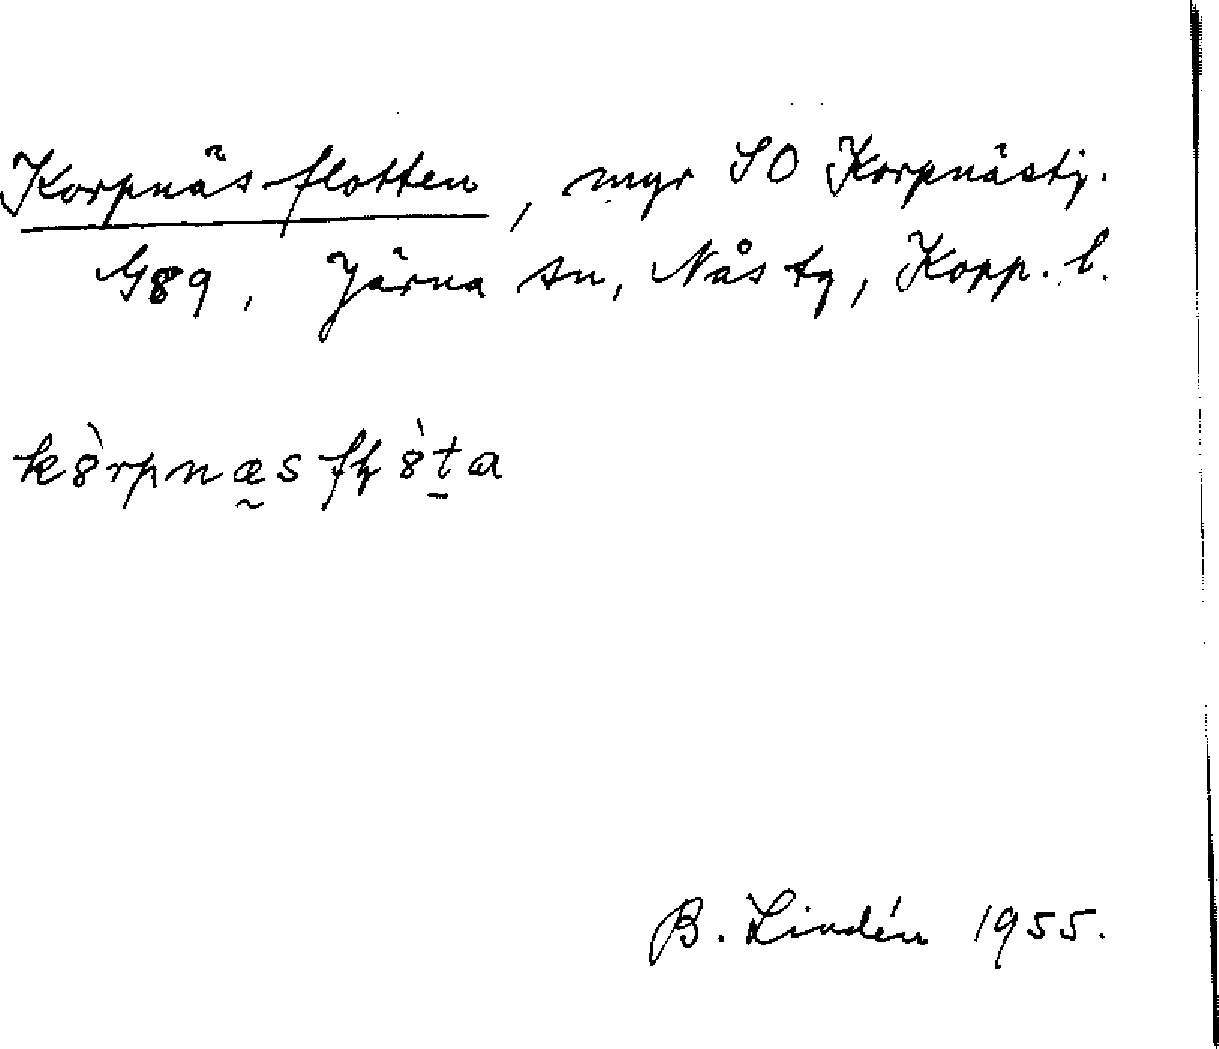 Korpnäsflotten, myr SO Korpnästj.
G89, Järna sn, Nås tg, Kopp. l.
kȣ̀rpnæ̰sfɭȣ̀ṯa
B. Lindén 1955.